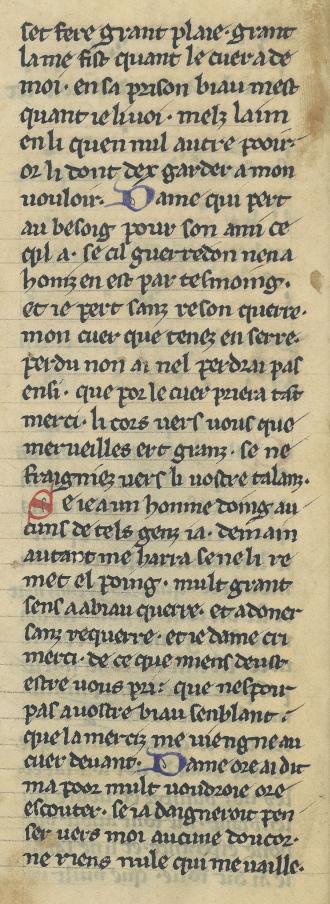 set fere grant plaie· grant
la me fist quant le cuer a de
moi· en sa prison biau mest
quant ie li uoi· melz laim
en li quen nul autre pooir·
or li dont dex garder a mon
uouloir· Dame qui pert
au besoig pour son ami ce
qil a· se cil guerredon nen a
honiz en est par tesmoing·
et ie pert sanz reson querre·
mon cuer que tenez en serre·
perdu non ai nel perdrai pas
ensi· que por le cuer priera tost
merci· li cors uers uous que
merueilles ert granz· se ne
fraigniez uers li uostre talanz·
Se ie aim honme doing au
cuns de tels genz ia· demain
autant me harra se ne li re
met el poing· mult grant
sens a a biau querre· et a doner
sanz requerre· et ie dame cri
merci· de ce que miens deust
estre uous pri: que nespoir
pas a uostre biau senblant:
que la merciz me uiengne au
cuer deuant· Dame ore ai dit
ma poor mult uoudroie ore
escouter· se ia daigneroit pen
ser uers moi aucune doucor·
ne riens nule qui me uaille·